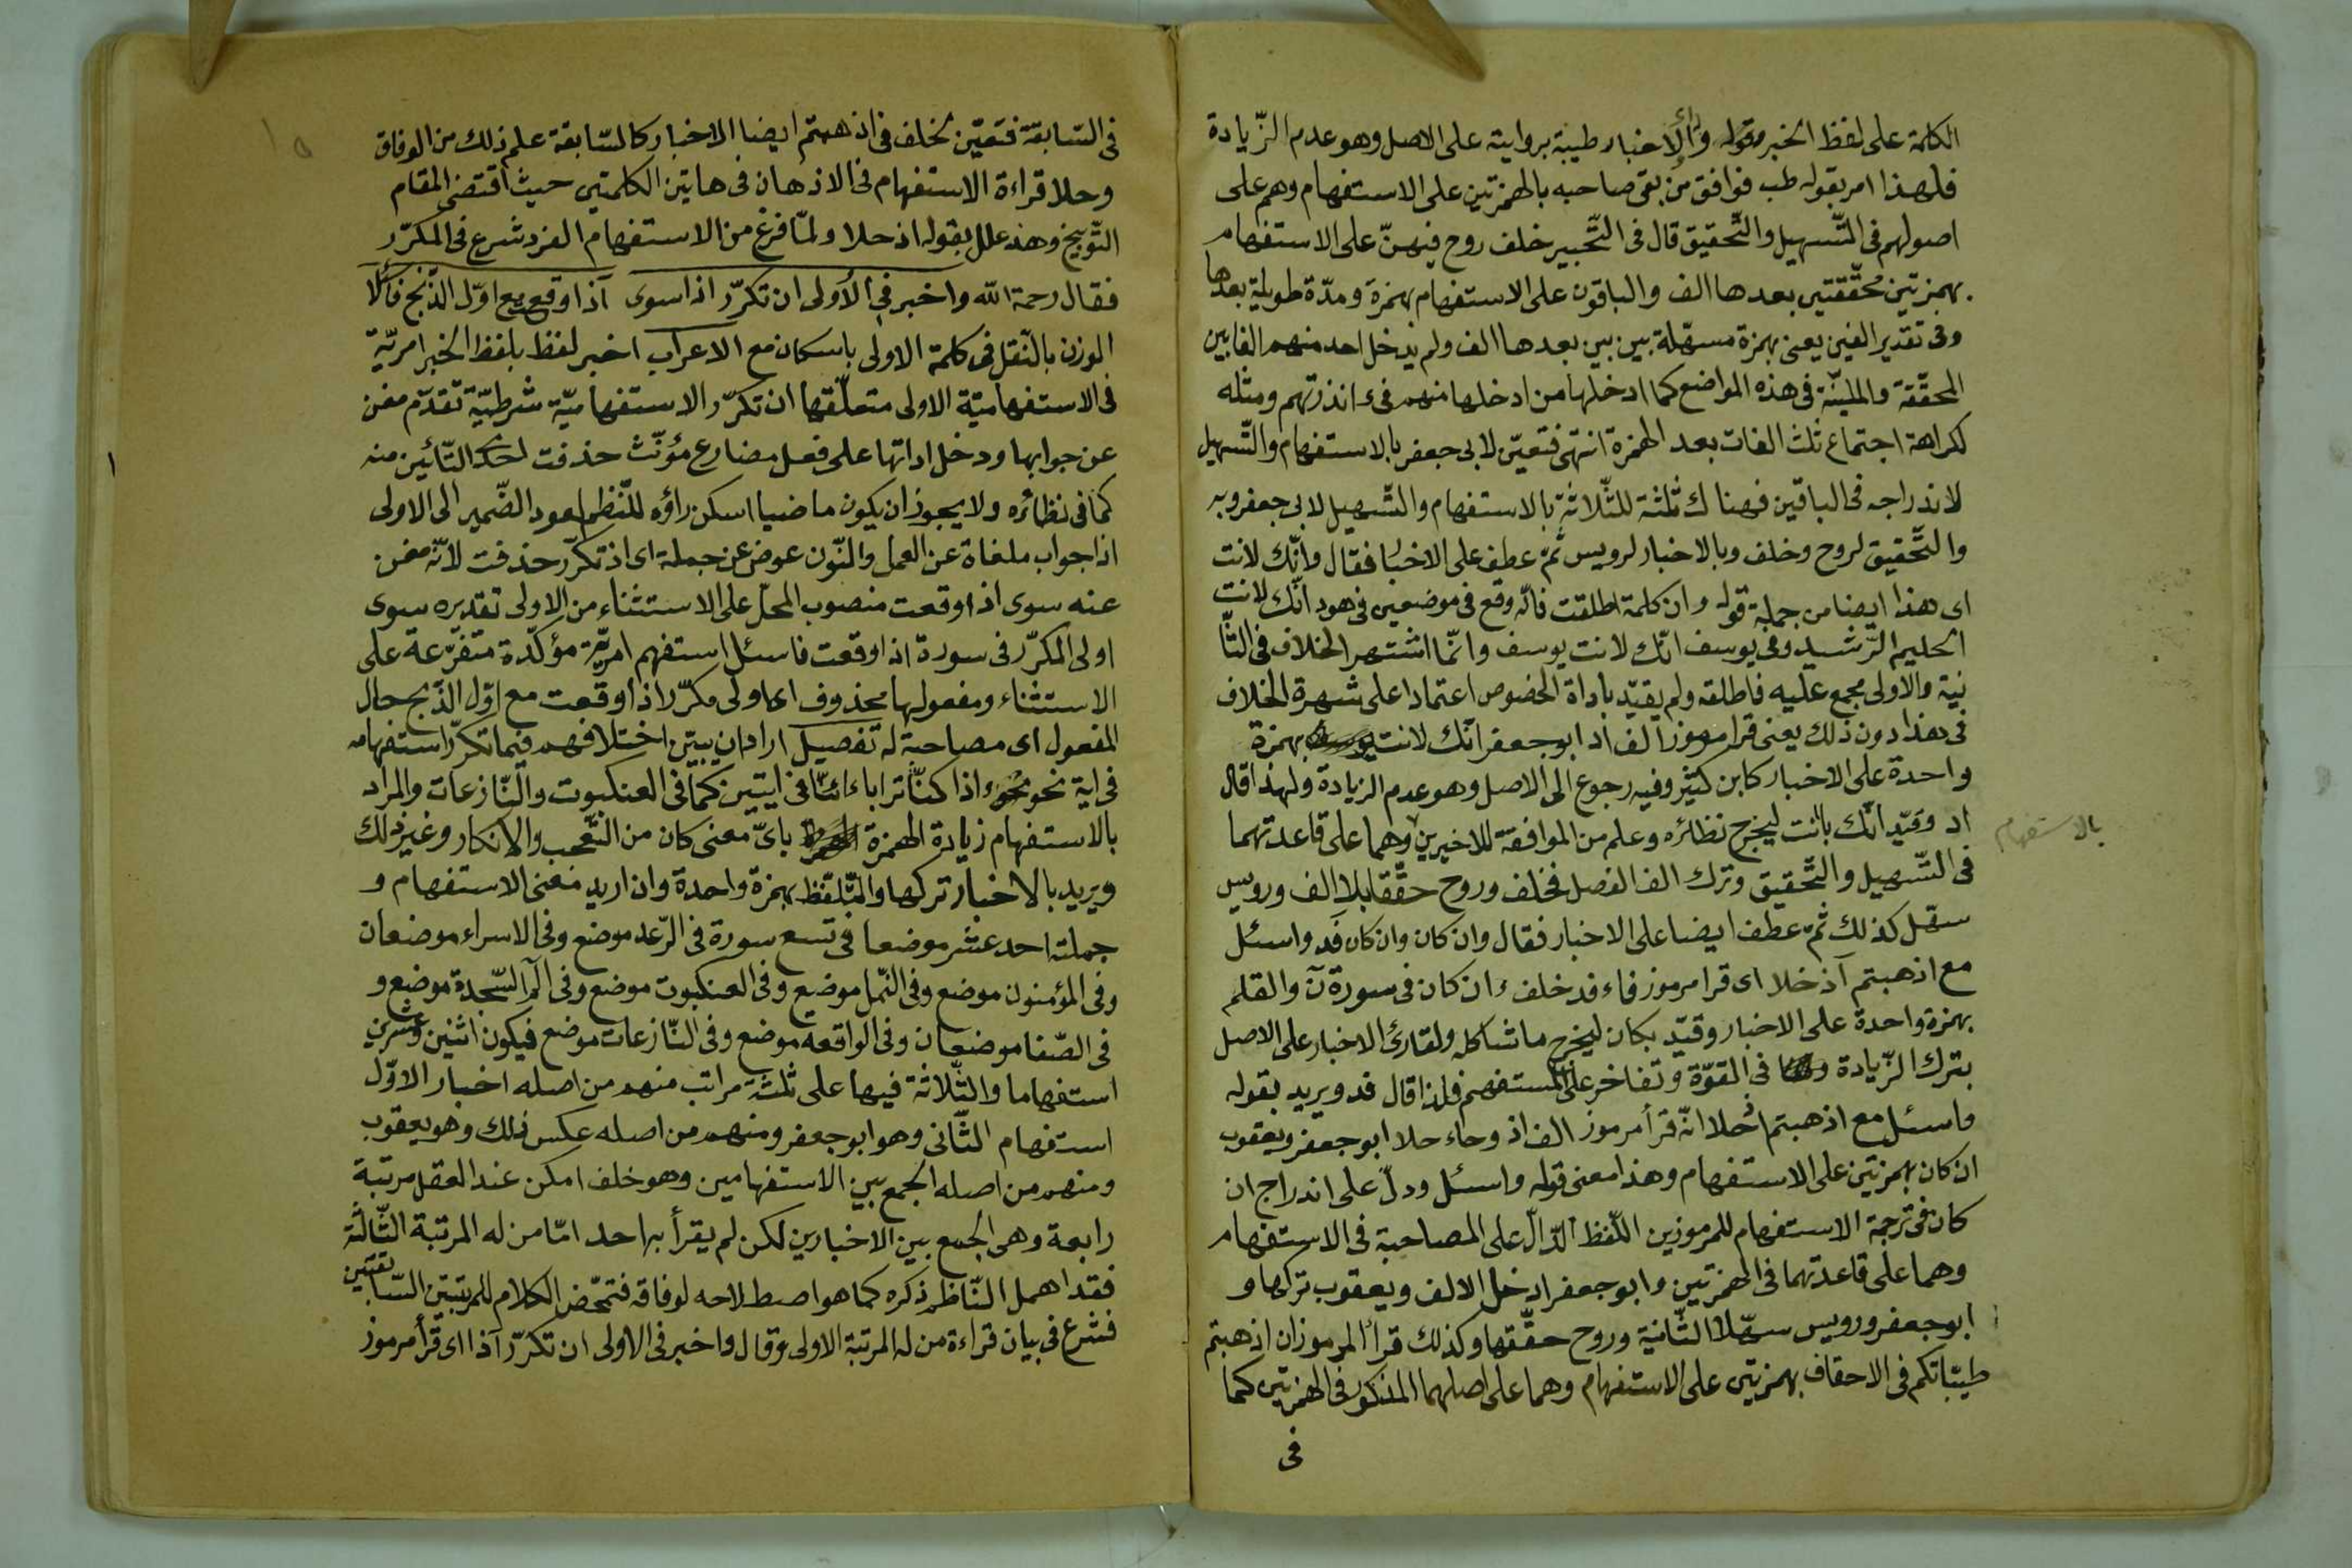 الكلمة على لفظ الخبر وقوله والاخبار طيبة بروايته على الاصل وهو عدم الزّيادة
فلهذا امر بقوله طب فوافق من بقى صاحبه بالهمزتين على الاستفهام وهم على
اصولهم فى التّسهيل والتّحقيق قال فى التّحبير خلف روح فيهنّ على الاستفهام
بهمزتين محقّقتين بعدها الف والباقون على الاستفهام بهمزة ومدّة طويلة بعدها
وفى تقدير الفين يعنى بهمزة مسهّلة بين بين بعدها الف ولم يدخل احد منهم الفا بين
المحقّقة والمليّنة فى هذه المواضع كما ادخلها من ادخلها منهم فى ءانذرتهم ومثله
لكراهة اجتماع ثلث الفات بعد الهمزة انتهى فتعيّن لابى جعفر بالاستفهام والتّسهيل
لاندراجه فى الباقين فهناك ثلثة للثّلاثة بالاستفهام والتّسهيل لابى جعفر وبه
والتّحقيق لروح وخلف وبالاخبار لرويس ثمّ عطف على الاخبار فقال وانّك لانت
اى هذا ايضا من جملة قوله وان كلمة اطلقت فانّه وقع فى موضعين فى هود انّك لانت
الحليم الرّشيد وفى يوسف انّك لانت يوسف وانّما اشتهر الخلاف فى الثّا
نية والاولى مجمع عليه فاطلقه ولم يقيّد باداة الخصوص اعتمادا على شهرة الخلاف
فى هذا دون ذلك يعنى قرا مرموز الف اد ابو جعفر انّك لانت بهمزة
واحدة على الاخبار كابن كثير وفيه رجوع الى الاصل وهو عدم الزيادة ولهذا قال
اد وقيّد انّك بانت ليخرج نظائره وعلم من الموافقة للاخيرين وهما على قاعدتهما
بالاستفهام
فى التّسهيل والتّحقيق وترك الف الفصل فخلف وروح حقّقا بلا الف ورويس
سهّل كذلك ثمّ عطف ايضا على الاخبار فقال وان كان وان كان فد واسئل
مع اذهبتم اذ حلا اى قرا مرموز فاء فد خلف ءان كان فى سورة ن والقلم
بهمزة واحدة على الاخبار وقيّد بكان ليخرج ما شاكله ولقارئ الاخبار على الاصل
بترك الزّيادة فى القوّة وتفاخر على المستفهم فلذا قال فد ويريد بقوله
واسئل مع اذهبتم اذ حلا انّه قرأ مرموز الف اذ وحاء حلا ابو جعفر ويعقوب
ان كان بهمزتين على الاستفهام وهذا معنى قوله واسئل ودلّ على اندراج ان
كان فى ترجمة الاستفهام للمرموزين اللّفظ الدّالّ على المصاحبة فى الاستفهام
وهما على قاعدتهما فى الهمزتين وابو جعفر ادخل الالف ويعقوب تركها و
ابو جعفر ورويس سهّلا الثّانية وروح حقّقها وكذلك قرأ المرموزان اذهبتم
طيّباتكم فى الاحقاف بهمزتين على الاستفهام وهما على اصلهما المذكور فى الهمزتين كما
فى
١٥
فى السّابقة فتعيّن لخلف فى اذهبتم ايضا الاخبار كالسّابقة علم ذلك من الوفاق
وحلا قراءة الاستفهام فى الاذهان فى هاتين الكلمتين حيث اقتضى المقام
التّوبيخ وهذ علل بقوله اذ حلا ولمّا فرغ من الاستفهام المفرد شرع فى المكرّر
فقال رحمة الله واخبر فى الأولى ان تكرّر اذا سوى آذا وقع مع اوّل الذّبح فاسئلا
الوزن بالنّقل فى كلمة الاولى باسكان مع الاعراب اخبر لفظ بلفظ الخبر امريّة
فى الاستفهاميّة الاولى متعلّقها ان تكرّر الاستفهاميّة شرطيّة تقدّم مغن
عن جوابها ودخل اداتها على فعل مضارع مؤنّث حذفت احد التّائين منه
كما فى نظائره ولا يجوز ان يكون ماضيا اسكن راؤه للنّظم لعود الضّمير الى الاولى
اذا جواب ملغاة عن العمل والنّون عوض عن جملة اى اذ تكرّر حذفت لانّه مغن
عنه سوى اذا وقعت منصوب المحلّ على الاستثناء من الاولى تقديره سوى
اولى المكرّر فى سورة اذا وقعت فاسئل استفهم امريّة مؤكّدة متفرّعة على
الاستثناء ومفعولها محذوف اى اولى مكرّر اذا وقعت مع اوّل الذّبح حال
المفعول اى مصاحبة له تفصيل اراد ان يبيّن اختلافهم فيما تكرّر استفهامه
فى اية نحو ءاذا كنّا ترابا ءائنّا فى ايتين كما فى العنكبوت والنّازعات والمراد
بالاستفهام زيادة الهمزة باىّ معنى كان من التّعجب والانكار وغير ذلك
ويريد بالاخبار تركها والتّلفّظ بهمزة واحدة وان اريد معنى الاستفهام و
جملته احد عشر موضعا فى تسع سورة فى الرّعد موضع وفى الاسراء موضعان
وفى المؤمنون موضع وفى النّمل موضع وفى العنكبوت موضع وفى الٓم السّجدة موضع و
فى الصّفا موضعان وفى الواقعه موضع وفى النّازعات موضع فيكون اثنين وعشرين
استفهاما والثّلاثة فيها على ثلثة مراتب منهم من اصله اخبار الاوّل
استفهام الثّانى وهو ابو جعفر ومنهم من اصله عكس ذلك وهو يعقوب
ومنهم من اصله الجمع بين الاستفهامين وهو خلف امكن عند العقل مرتبة
رابعة وهى الجمع بين الاخبارين لكن لم يقرأ بها احد امّا من له المرتبة الثّالثة
فقد اهمل النّاظم ذكره كما هو اصطلاحه لوفاقه فتمحّض الكلام للمرتبتين السّابقتين
فشرع فى بيان قراءة من له المرتبة الاولى وقال واخبر فى الاولى ان تكرّر آذا اى قرأ مرموز